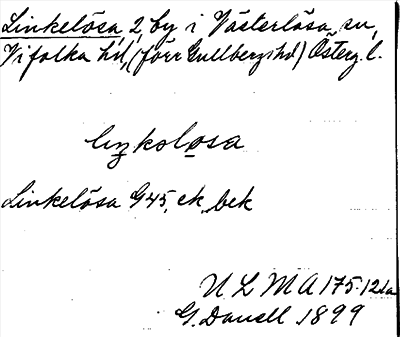 Linkelösa, 2, by i Västerlösa sn,
Vifolka hd, (förr Gullbergs hd) Österg. l.
liŋkolosa
Linkelösa G45, ek, bek
U L M A 175:121a
G. Danell 1899